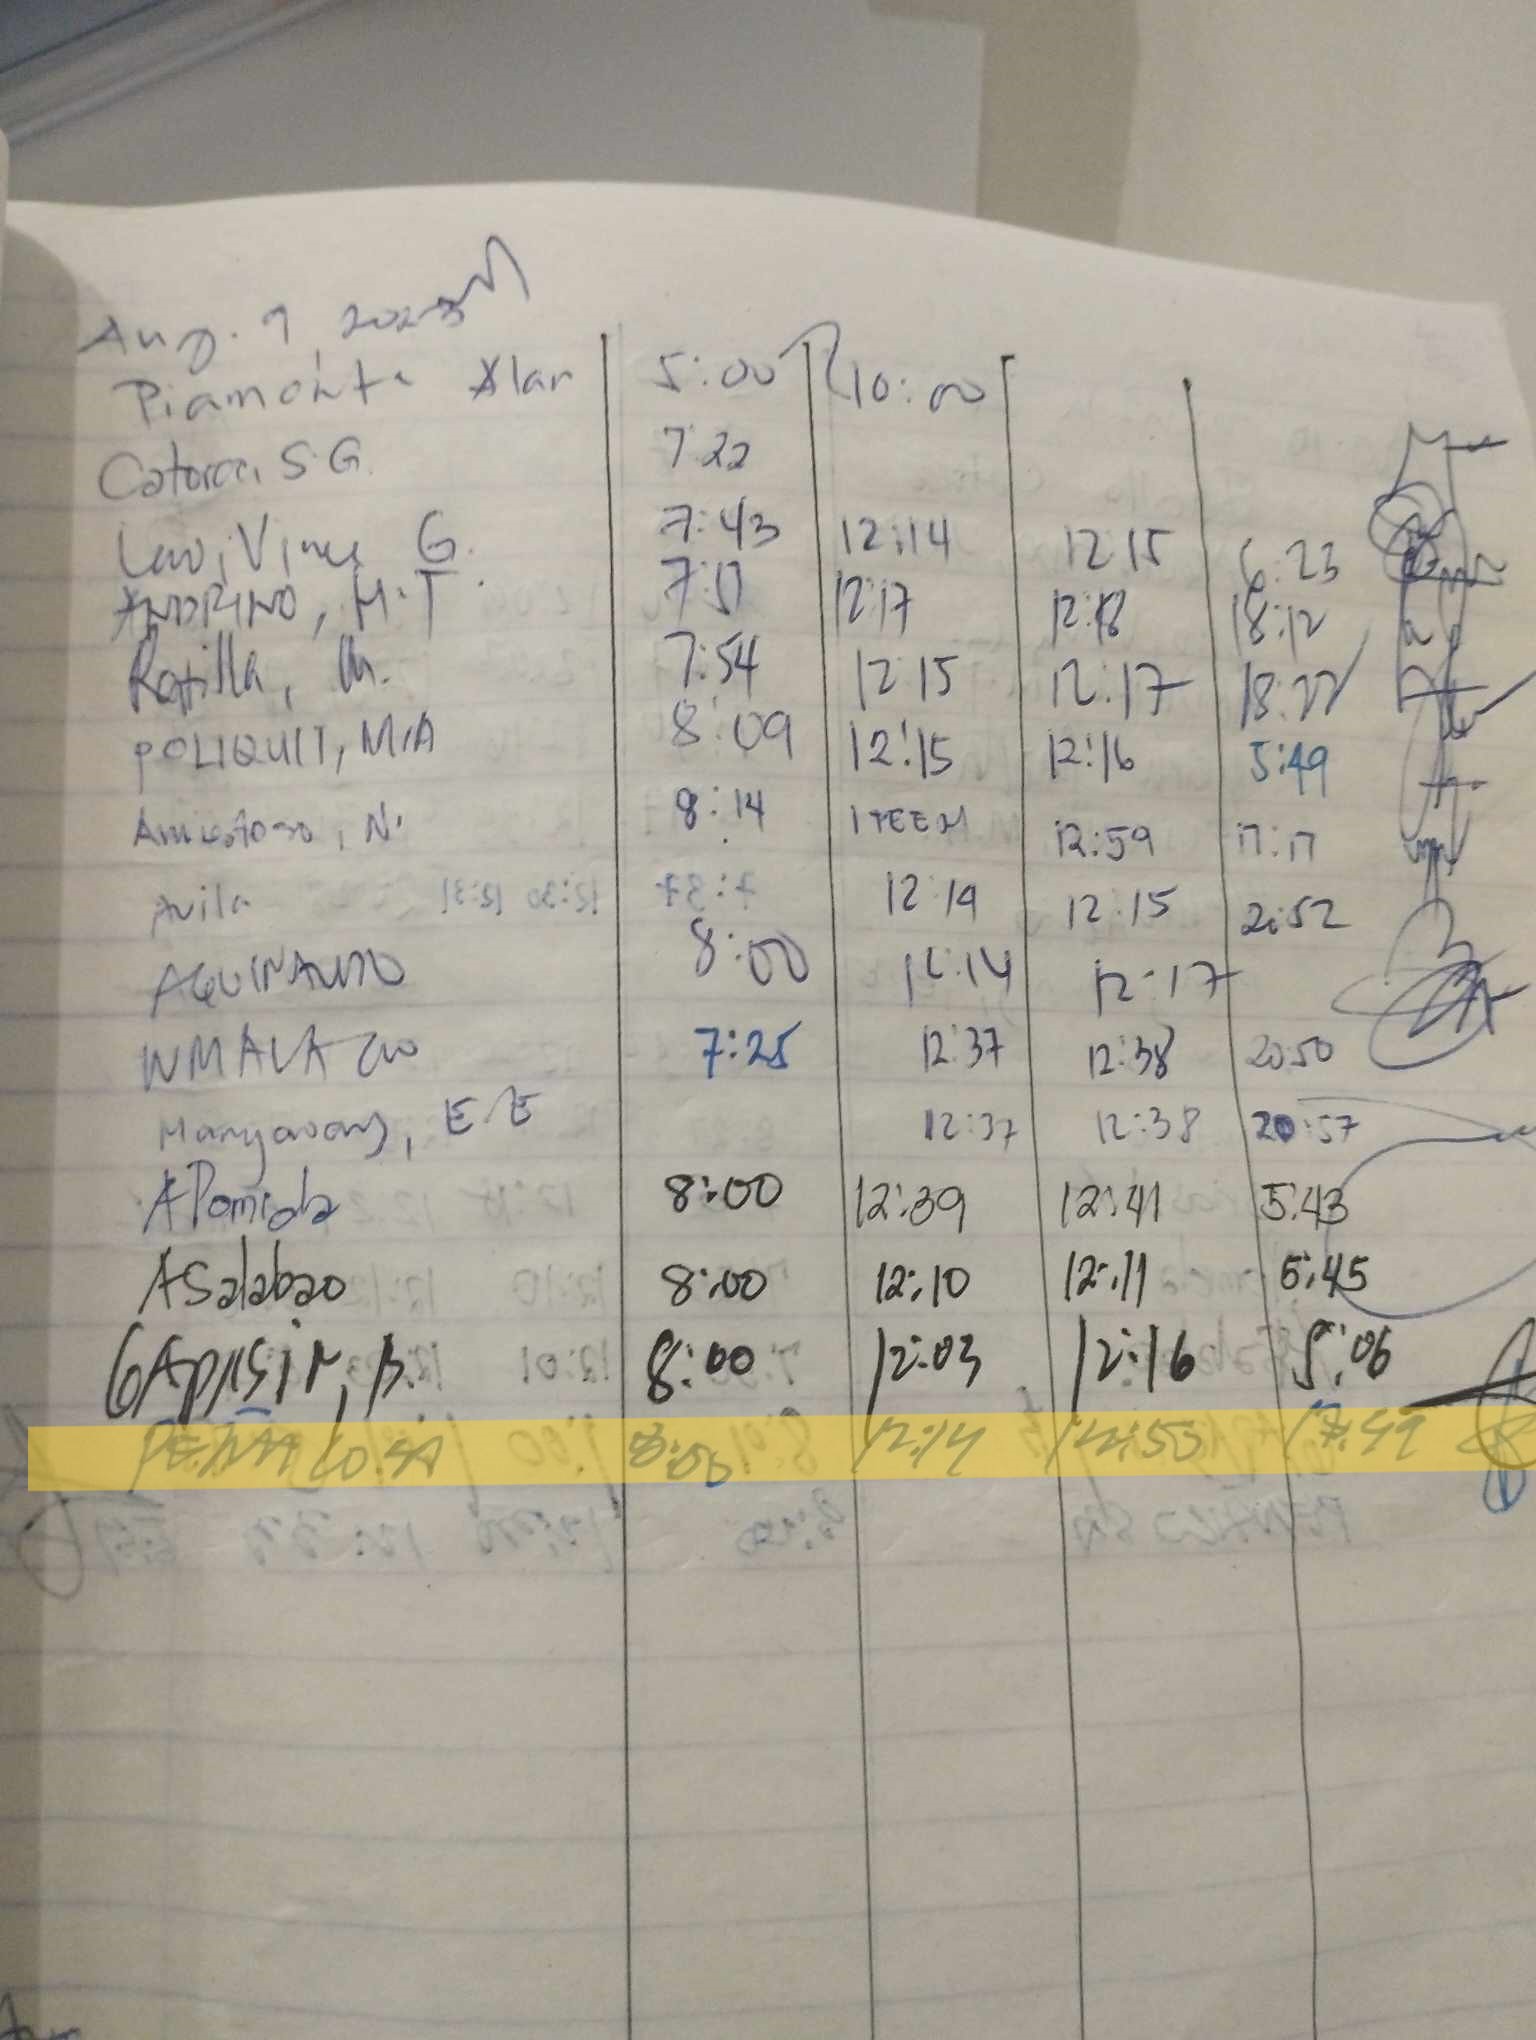 Aug. 9, 2023
Piamonte Alan 5:00 10:00
Catorce, S.G. 7:22
Lao, Vince G. 7:43 12:14 12:15 6:23
ANDRINO, M.T. 7:51 12:17 12:18 18:12
Rotilla, M. 7:54 12:15 12:17 18:22
POLIQUIT, M.A 8:09 12:15 12:16 5:49
Amistoso, N. 8:14 12:59 17:17
Avila 12:14 12:15 20:52
AGUINALDO 8:00 12:14 12:17
7:25 12:37 12:38 20:50
E.E 12:37 12:38 20:57
APomida 8:00 12:39 12:41 5:43
ASalabao 8:00 12:10 12:11 5:45
GAPASIN, B. 8:00 12:03 12:16 5:06
PEÑALOSA 8:00 12:14 12:55 17:49